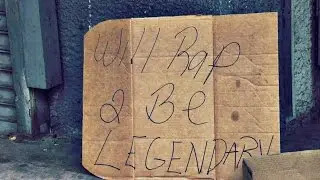 Will Rap
2 Be
LEGENDARY